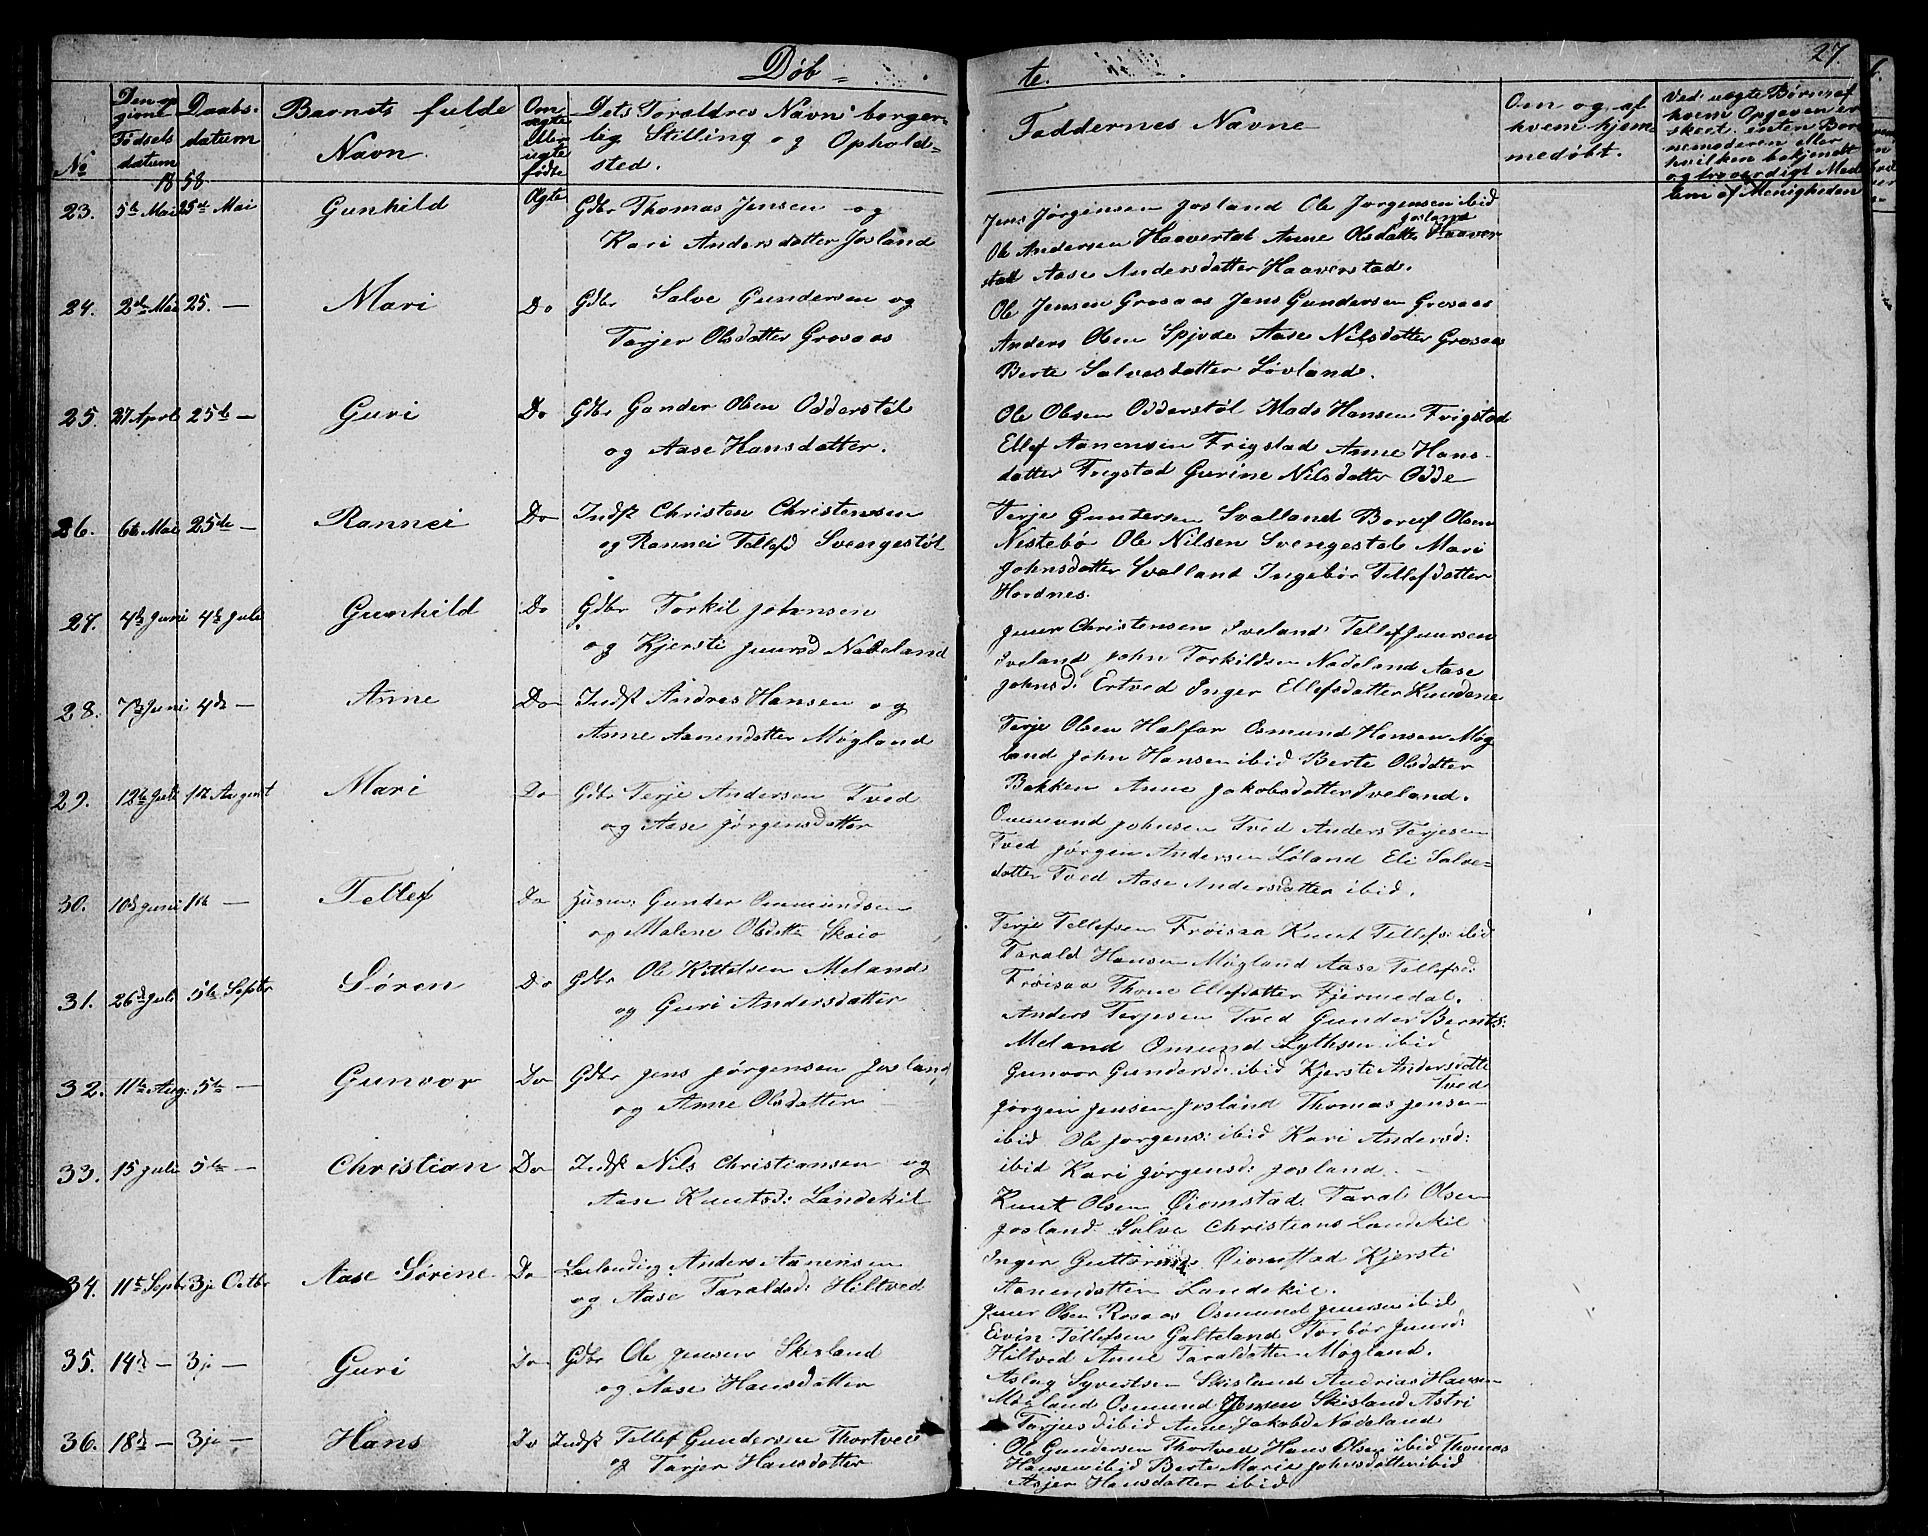 Døb=
te.
27.
No
Den op
givne
Fødsels
datum
Daabs-
datum
Barnets fulde
Navn.
Om
ægte
eller
uægte
fødte
Dets Forældres Navn borger-
lig Stilling og Ophold-
sted.
Faddernes Navne
Om og af
hvem hjem-
medøbt.
Ved uægte Børn af
hvem Opgaven er
skeet enten Bar
nemoderen eller
hvilken bekjendt
og troværdigt Med
lem af Menigheden
1858
23. 5te Mai 25de Mai Gunhild Ægte Gdbr Thomas Jensen og
Kari Andersdatter Josland
Jens Jørgensen Josland Ole Jørgensen ibid
Josland
Ole Andersen Haaverstad Anne Olsdatter Haaver
stad Aase Andersdatter Haaverstad.
24. 2den Mai 25. — Mari Do Gdbr Salve Gundersen og
Tarjer Olsdatter Grosaas
Ole Jensen Grosaas Jens Gundersen Grosaas
Anders Olsen Spjode Aase Nilsdatter Grosaas
Berte Salvesdatter Løvland.
25. 27 April 25de — Guri Do Gdbr Gunder Olsen Odderstøl
og Aase Hansdatter.
Ole Olsen Odderstøl Mads Hansen Frigstad
Ellef Aanensen Frigstad Anne Hans-
datter Frigstad Gurine Nilsdatter Odde
26. 6te Mai 25de — Rannei Do Indst Christen Christensen
og Rannei Tellefd Svengestøl
Terje Gundersen Svalland Boruf Olsen
Nestebø Ole Nilsen Svengestøl Mari
Johnsdatter Svalland Ingebør Tellefdatter
Hodnes.
27. 4de Juni 4de Juli Gunhild Do Gdbr Torkil Johnsen
og Kjersti Juursd Nateland
Juur Christensen Iveland Tellef Juursen
Iveland John Torkildsen Nadeland Aase
Johnsd: Ertved Inger Ellefsdatter Knudene
28. 7de Juni 4de — Anne Do Indst Andres Hansen og
Anne Aanendatter Møgland
Terje Olsen Halfar Osmund Hansen Møg
land John Hansen ibid Berte Olsdatter
Bakken Anne Jakobsdatter Iveland.
29. 12te Juli 1ste August Mari Do Gdbr Terje Andersen Tved
og Aase Jørgensdatter
Ommund Johnsen Tved Anders Terjesen
Tved Jørgen Andersen Løland Eli Salve-
datter Tved Aase Andersdatter ibid.
30. 10de Juni 1ste — Tellef Do Husm: Gunder Ommundsen
og Malene Olsdatter Skaio
Terje Tellefsen Frøisaa Knut Tellefs: ibid
Tarald Hansen Møgland Aase Tellefsd:
Frøisaa Thone Ellefsdatter Fjermedal.
31. 26de Juli 5te Septbr Søren Do Gdbr Ole Kittelsen Meland
og Guri Andersdatter
Anders Terjesen Tved Gunder Bernts:
Meland Omund Lythsen ibid
Gunvor Gundersd: ibid Kjerste Andersdatte
Tved
32. 11te Aug. 5te — Gunvor Do Gdbr Jens Jørgensen Josland
og Anne Olsdatter
Jørgen Jensen Josland Thomas Jensen
ibid Ole Jørgens: ibid Kari Andersd:
ibid Kari Jørgensd: Josland.
33. 15 Juli 5te — Christian Do Indst Nils Christiansen og
Aase Knutsd: Landekil
Knut Olsen Øiomstad Taral Olsen
Josland Salve Christians Landekil
Inger Guttormsd: Øiomstad Kjersti
Aanendatter Landekil.
34. 11te Septbr 3je Octbr Aase Sørine Do Leilænding Anders Aanensen
og Aase Taraldsd: Hiltved
Juur Olsen Rosaas Osmund Juursen ibid
Eivin Tellefsen Galteland Torbør Juurd:
Hiltved Anne Taraldatter Møgland.
35. 14de — 3je — Guri Do Gdbr Ole Jensen Skisland
og Aase Hansdatter
Aslag Syvertsen Skisland Andrias Hansen
Møgland Osmund Jensen Skisland Astri
Tarjusd ibid Anne Jakobd Nadeland
36. 18de — 3je — Hans Do Indst Tellef Gundersen Thortved
og Tarjer Hansdatter
Ole Gundersen Thortved Hans Olsen ibid Thomas
Hansen ibid Berte Marie Johnsdatter ibid
Asjer Hansdatter ibid